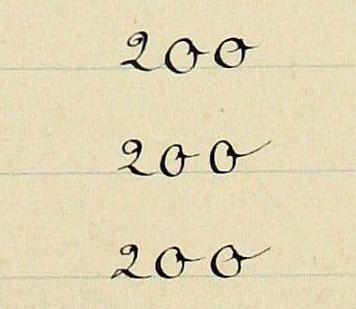 200
200
200